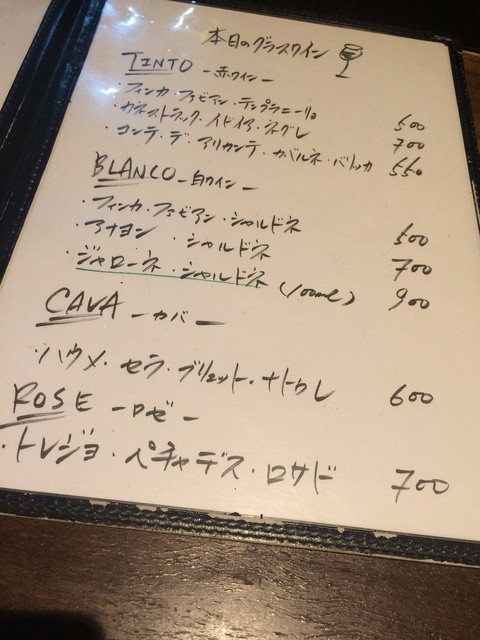 本日のグラスワイン
TINTO －赤ワイン－
・フィンカ・ファビアン・テンプラニーリョ 500
・ガネストラック・ネグレ 700
・コンテ・デ・アリカンテ・カバルネ・バリッカ 550
BLANCO －白ワイン－
・フィンカ・ファビアン・シャルドネ 500
・アナヨン・シャルドネ 700
・ジャローネ・シャルドネ (100ml) 900
CAVA －カバ－
・ハウメ・セラ・ブリュット・ナトゥレ 600
ROSE －ロゼ－
・トレジョ・ペチャデス・ロサド 700